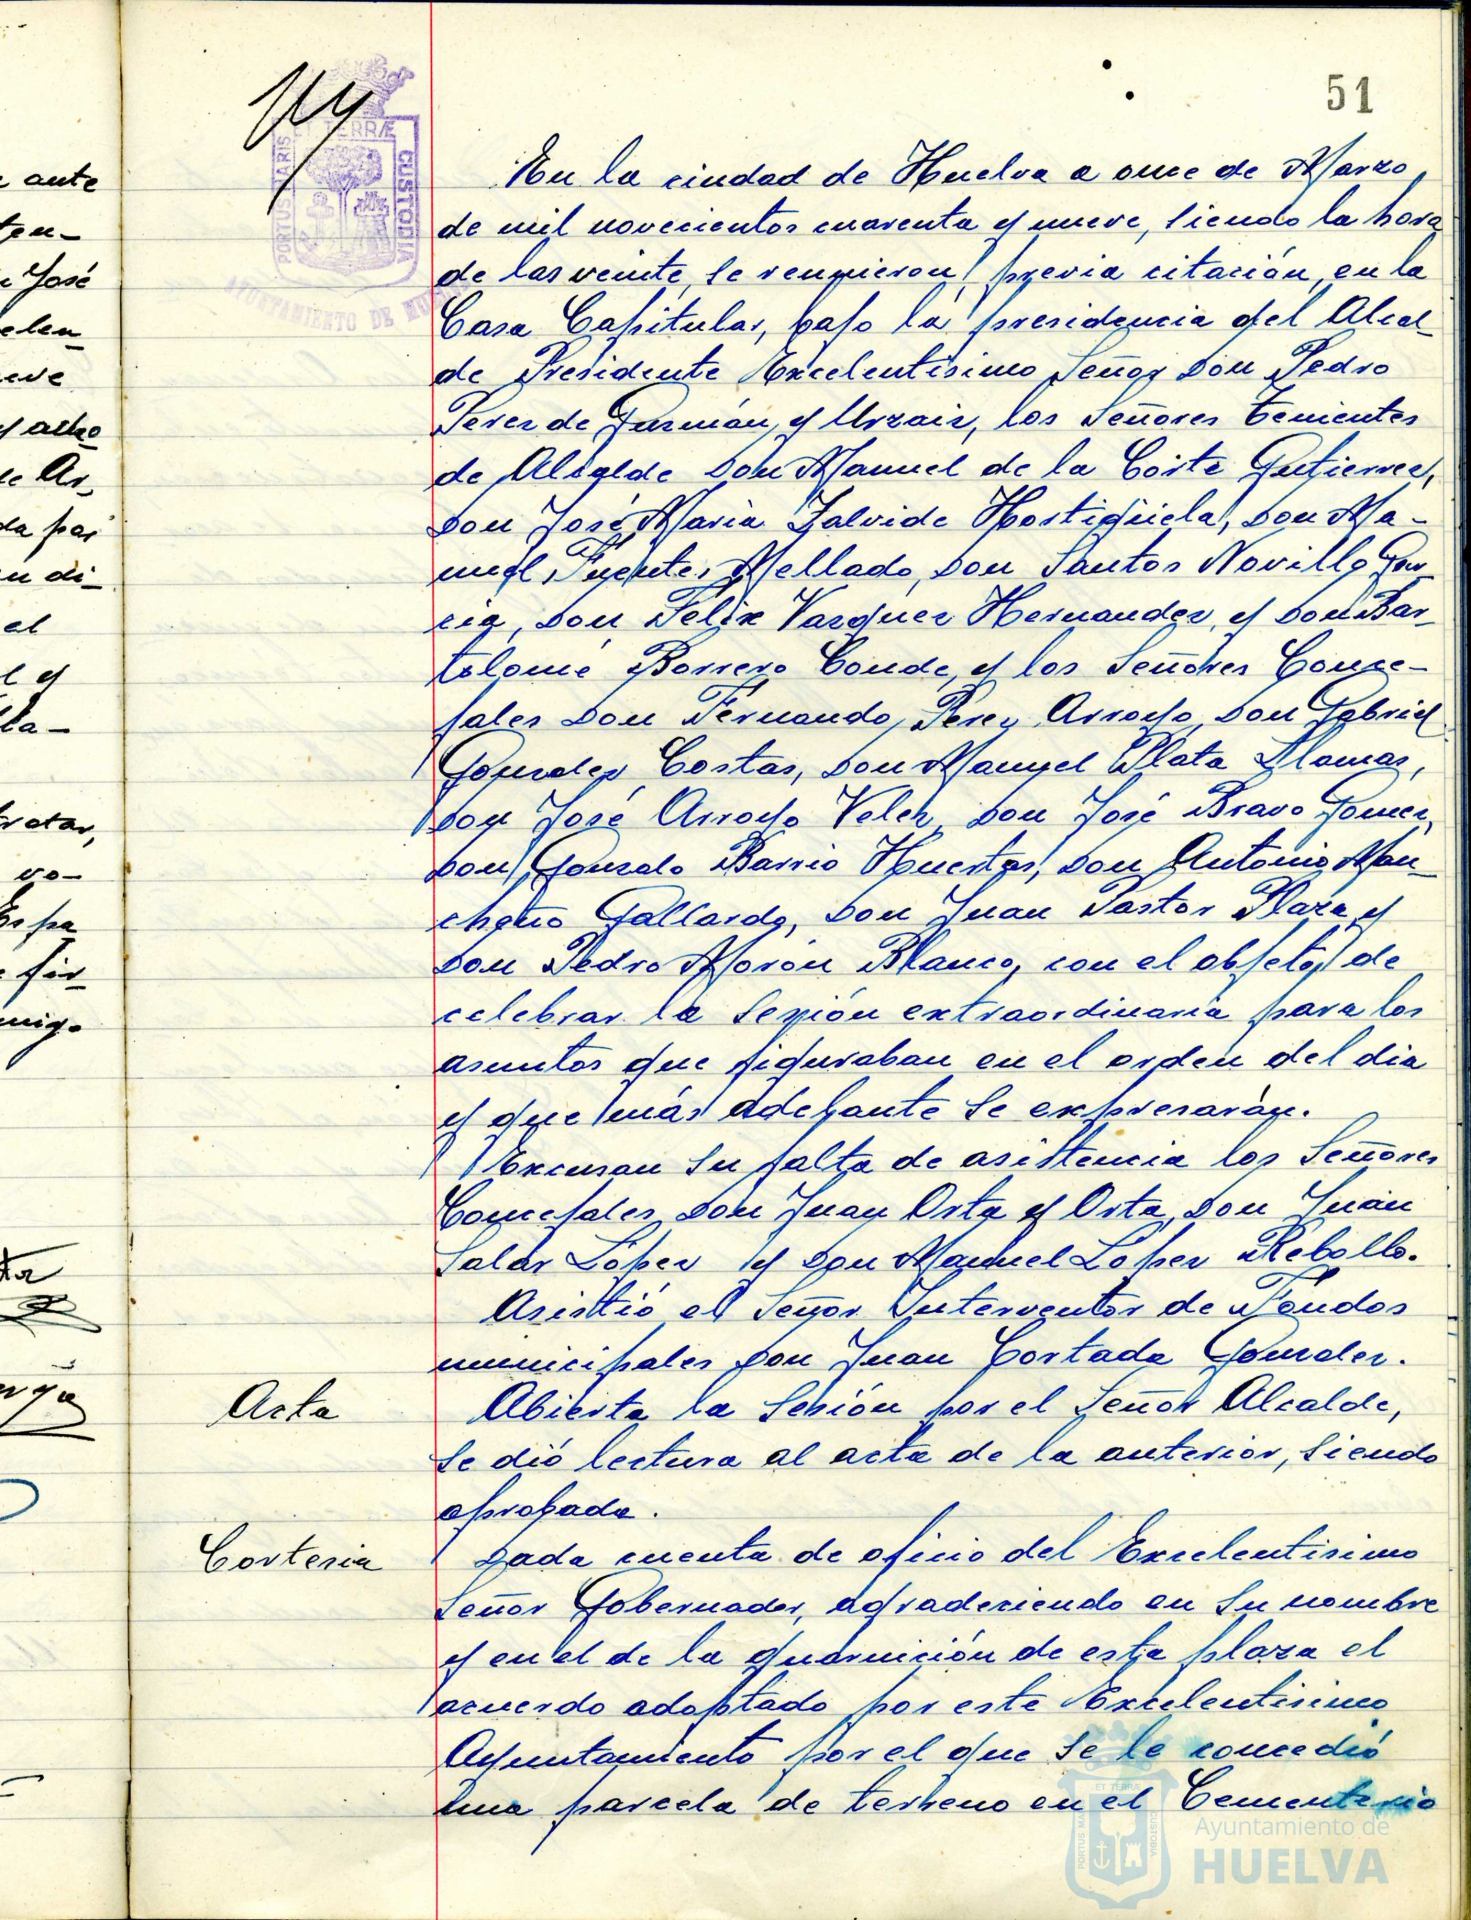 51
PORTUS MARIS ET TERRÆ CUSTODIA
AYUNTAMIENTO DE HUELVA
En la ciudad de Huelva a once de Marzo
de mil novecientos cuarenta y nueve, siendo la hora
de las veinte, se reunieron, previa citación, en la
Casa Capitular, bajo la presidencia del Alcal-
de Presidente Excelentisimo Señor Don Pedro
Perez de Guzmán y Urzaiz, los Señores Tenientes
de Alcalde Don Manuel de la Corte Gutierrez,
Don José Maria Zalvide Hostigüela, Don Ma-
nuel Fuentes Mellado, Don Santos Novillo Gar-
cia, Don Félix Vazquez Hernandez, y Don Bar-
tolomé Borrero Conde, y los Señores Conce-
jales Don Fernando Perez Arroyo, Don Gabriel
Gonzalez Costas, Don Manuel Plata Llamas,
Don José Arroyo Velez, Don José Bravo Gomez,
Don Gonzalo Barrio Huertas, Don Antonio Man-
cheño Gallardo, Don Juan Pastor Plaza y
Don Pedro Morón Blanco, con el objeto de
celebrar la sesión extraordinaria para los
asuntos que figuraban en el orden del dia
y que más adelante se expresarán.
Excusan su falta de asistencia los Señores
Concejales Don Juan Orta y Orta, Don Juan
Salar López y Don Manuel López Rebollo.
Asistió el Señor Interventor de Fondos
municipales Don Juan Cortada Gonzalez.
Acta Abierta la sesión por el Señor Alcalde,
se dió lectura al acta de la anterior, siendo
aprobada.
Cortesia Dada cuenta de oficio del Excelentisimo
Señor Gobernador, agradeciendo en su nombre
y en el de la guarnición de esta plaza el
acuerdo adoptado por este Excelentisimo
Ayuntamiento por el que se le concedió
una parcela de terreno en el Cementerio
Ayuntamiento de
HUELVA